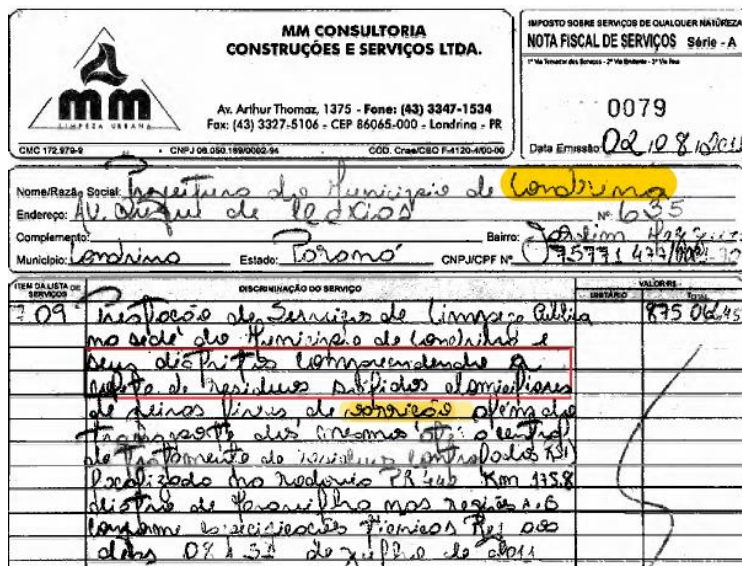 MM CONSULTORIA
CONSTRUÇÕES E SERVIÇOS LTDA.
MM
LIMPEZA URBANA
Av. Arthur Thomaz, 1375 - Fone: (43) 3347-1534
Fax: (43) 3327-5106 - CEP 86065-000 - Londrina - PR
CMC 172.979-9 • CNPJ 06.050.169/0002-94 COD. Cnae/CBO F-4120-4/00-00
IMPOSTO SOBRE SERVIÇOS DE QUALQUER NATUREZA
NOTA FISCAL DE SERVIÇOS Série - A
0079
Data Emissão: 02, 08, 2011
Nome/Razão Social: Prefeitura do Municipio de Londrina
Endereço: AV. Duque de Caxias Nº 635
Complemento: Bairro: Jardim
Município: Londrina Estado: Paraná CNPJ/CPF Nº 75771 477/
ITEM DA LISTA DE SERVIÇOS DISCRIMINAÇÃO DO SERVIÇO VALOR R$
UNITÁRIO TOTAL
7 09 Prestação de Serviços de Limpeza Publica 875 062,45
na sede do Municipio de Londrina e
seus distritos compreendendo a
coleta de residuos solidos domiciliares
de feiras livres de varrição além do
transporte dos mesmos até o central
de tratamento de residuos
localizado na rodovia PR 445 Km 175.8
distrito de nas regiões
conforme especificações tecnicas Ref aos
dias 08 a 31 de julho de 2011